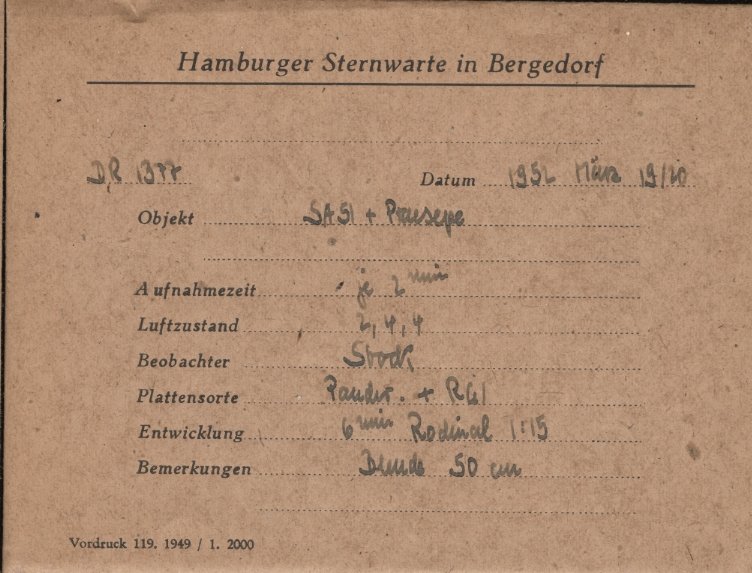 Hamburger Sternwarte in Bergedorf
DR 1377 Datum 1952 März 19/20
Objekt SA51 + Praesepe
Aufnahmezeit je 2 min
Luftzustand 2, 4, 4
Beobachter Stock
Plattensorte + RG1
Entwicklung 6 min Rodinal 1:15
Bemerkungen Blende 50 cm
Vordruck 119. 1949 / 1. 2000